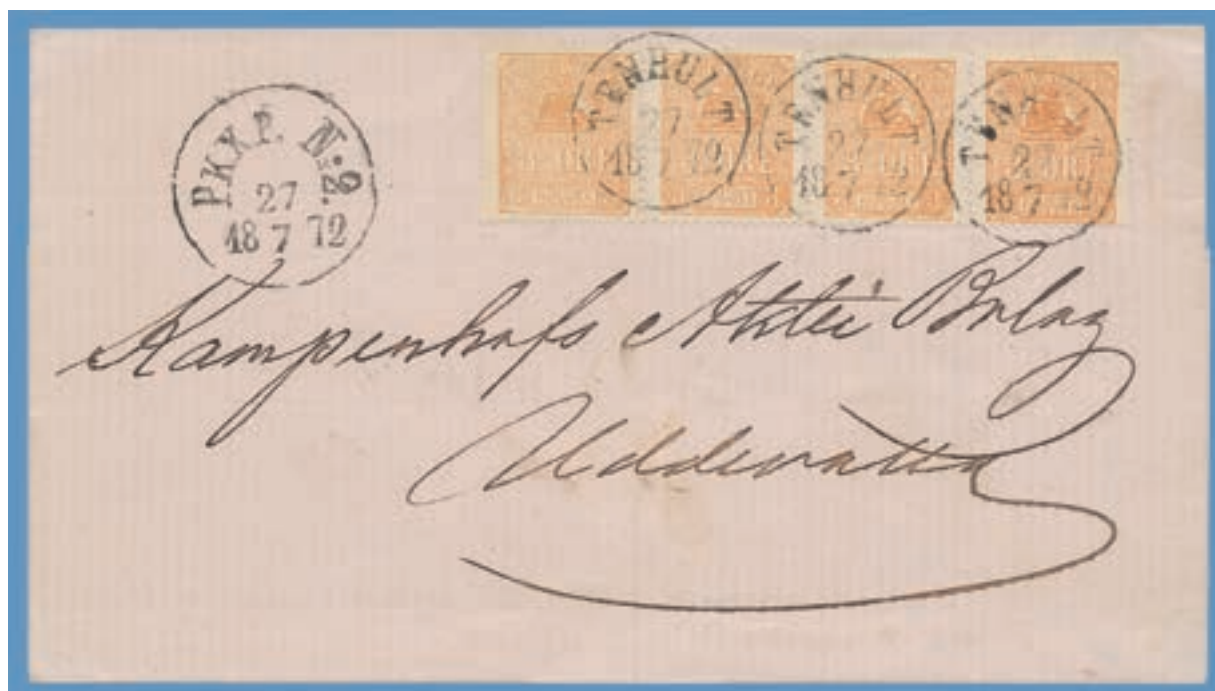 PKXP. N:2.
27
18 7 72
TENHULT
27
18 7 72
TENHULT
27
18 7 72
TENHULT
27
18 7 72
Kampenhofs Aktie Bolag
Uddevalla